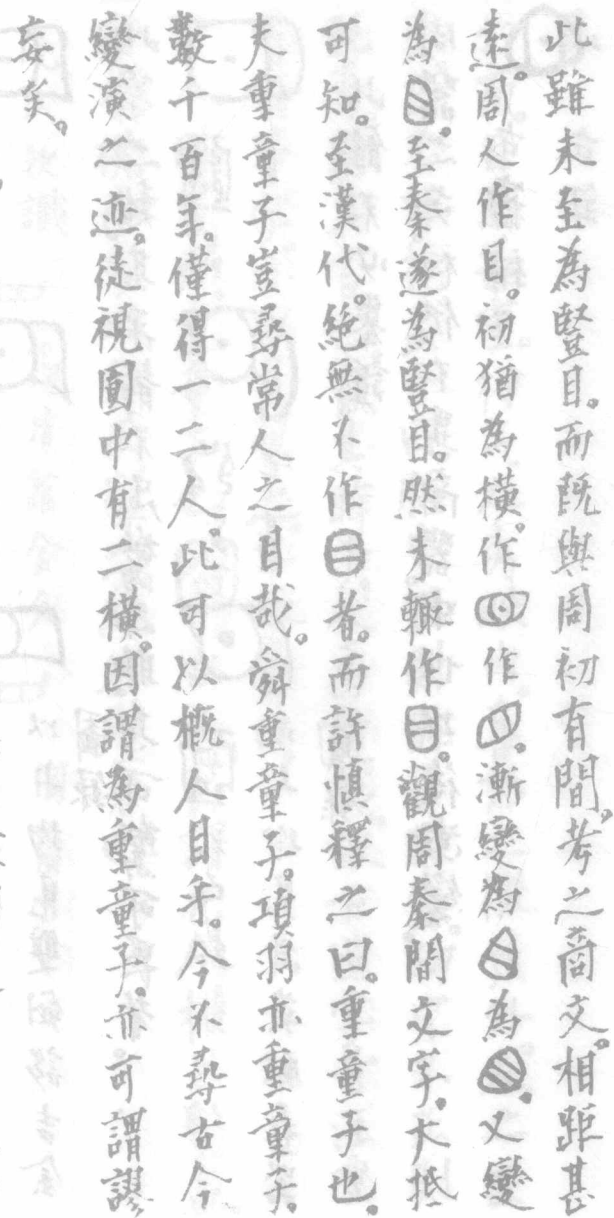 此雖未至為豎目。而既與周初有間。考之商文。相距甚
遠。周人作目。初猶為橫。作作。漸變為為。又變
為。至秦遂為豎目。然未輒作目。觀周秦間文字。大抵
可知。至漢代。絕無不作目者。而許慎釋之曰。重童子也。
夫重童子豈尋常人之目哉。舜重童子。項羽亦重童子。
數千百年。僅得一二人。此可以概人目乎。今不尋古今
變演之迹。徒視圖中有二橫。因謂為重童子。亦可謂謬
妄矣。